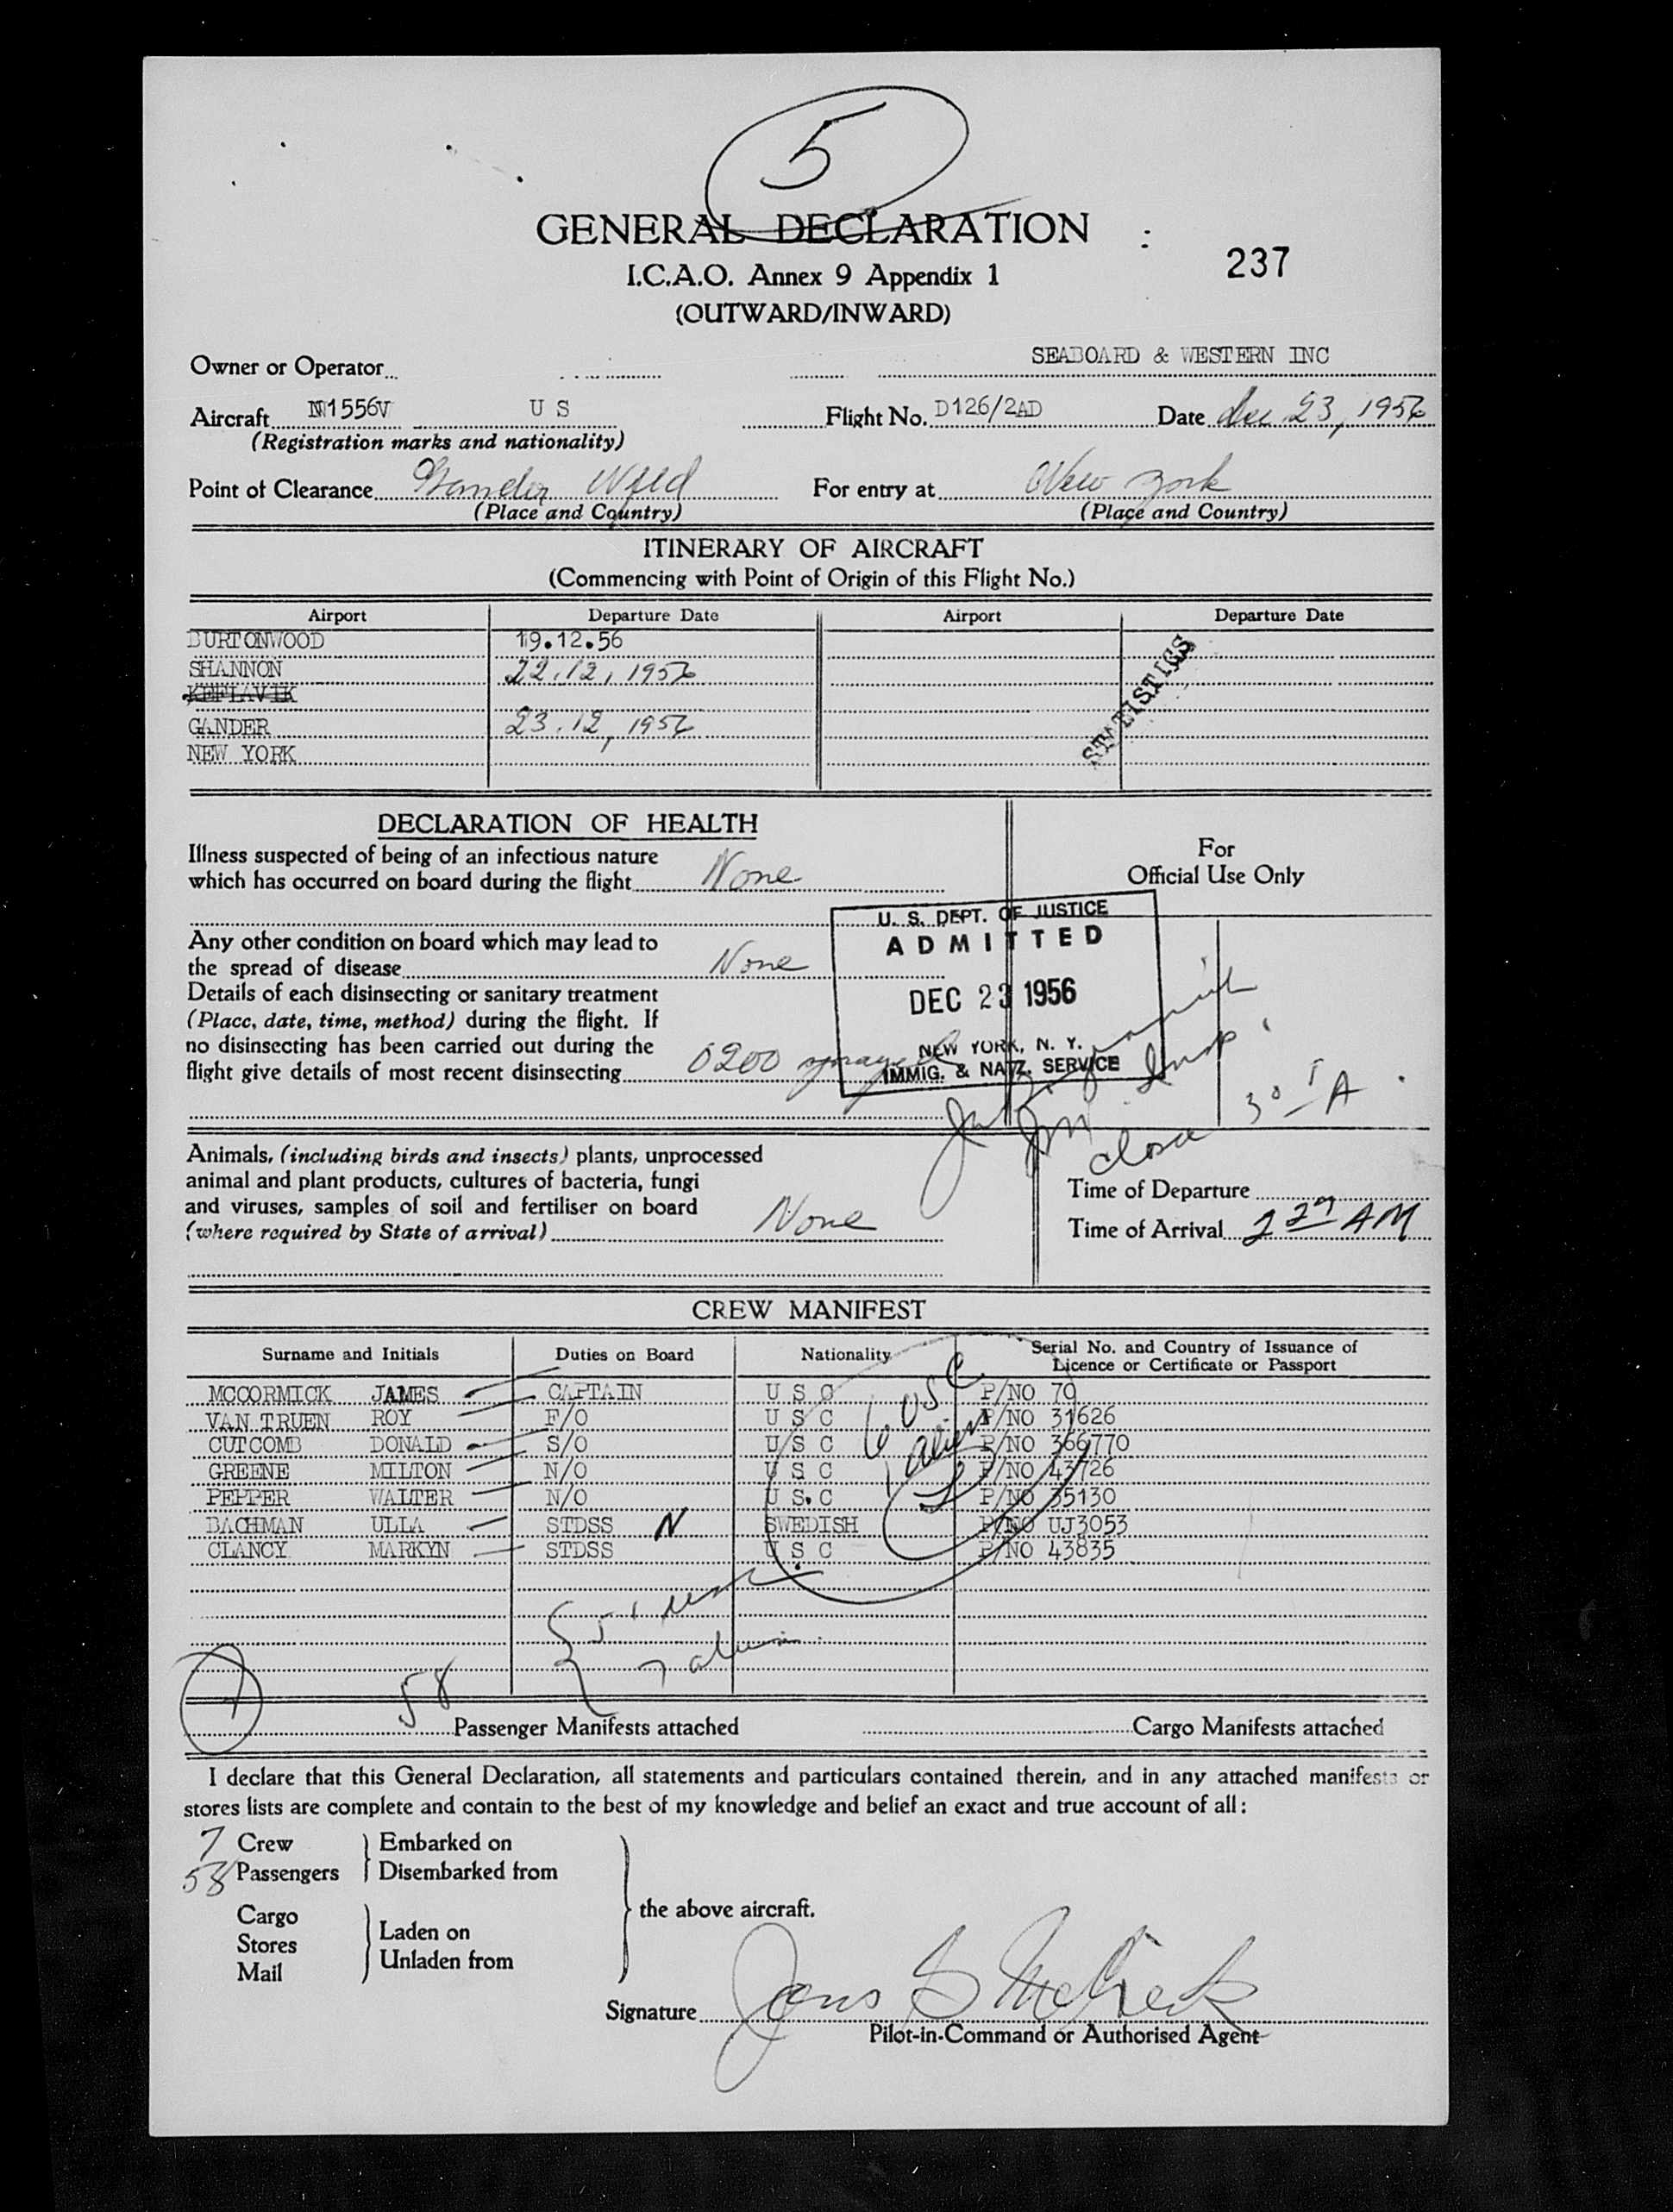 5
GENERAL DECLARATION
237
I.C.A.O. Annex 9 Appendix 1
(OUTWARD/INWARD)
Owner or Operator SEABOARD & WESTERN INC
Aircraft N1556V U S Flight No. D126/2AD Date Dec 23, 1956
(Registration marks and nationality)
Point of Clearance Gander Nfld For entry at New York
(Place and Country) (Place and Country)
ITINERARY OF AIRCRAFT
(Commencing with Point of Origin of this Flight No.)
Airport Departure Date Airport Departure Date
BURTONWOOD 19.12.56
SHANNON 22.12,1956
KEFLAVIK
GANDER 23.12,1956
NEW YORK
STATISTICS
DECLARATION OF HEALTH
For
Official Use Only
Illness suspected of being of an infectious nature
which has occurred on board during the flight None
Any other condition on board which may lead to
the spread of disease None
Details of each disinsecting or sanitary treatment
(Place, date, time, method) during the flight. If
no disinsecting has been carried out during the
flight give details of most recent disinsecting 0200 sprayed
U. S. DEPT. OF JUSTICE
ADMITTED
DEC 23 1956
NEW YORK, N. Y.
IMMIG. & NATZ. SERVICE
Insp.
close 30 A
Animals, (including birds and insects) plants, unprocessed
animal and plant products, cultures of bacteria, fungi
and viruses, samples of soil and fertiliser on board
(where required by State of arrival) None
Time of Departure
Time of Arrival 2 27 AM
CREW MANIFEST
Surname and Initials Duties on Board Nationality Serial No. and Country of Issuance of Licence or Certificate or Passport
MCCORMICK JAMES CAPTAIN U S C P/NO 79
VAN TRUEN ROY F/O U S C P/NO 31626
CUTCOMB DONALD S/O U S C P/NO 366770
GREENE MILTON N/O U S C P/NO 43726
PEPPER WALTER N/O U S.C P/NO 35130
BACHMAN ULLA STDSS N SWEDISH P/NO UJ3053
CLANCY MARKYN STDSS U S C P/NO 43835
6 USC
1 alien
7
51
7 alien
7
58 Passenger Manifests attached Cargo Manifests attached
I declare that this General Declaration, all statements and particulars contained therein, and in any attached manifests or
stores lists are complete and contain to the best of my knowledge and belief an exact and true account of all:
7 Crew Embarked on
58 Passengers Disembarked from
the above aircraft.
Cargo
Stores
Mail
Laden on
Unladen from
Signature
Pilot-in-Command or Authorised Agent